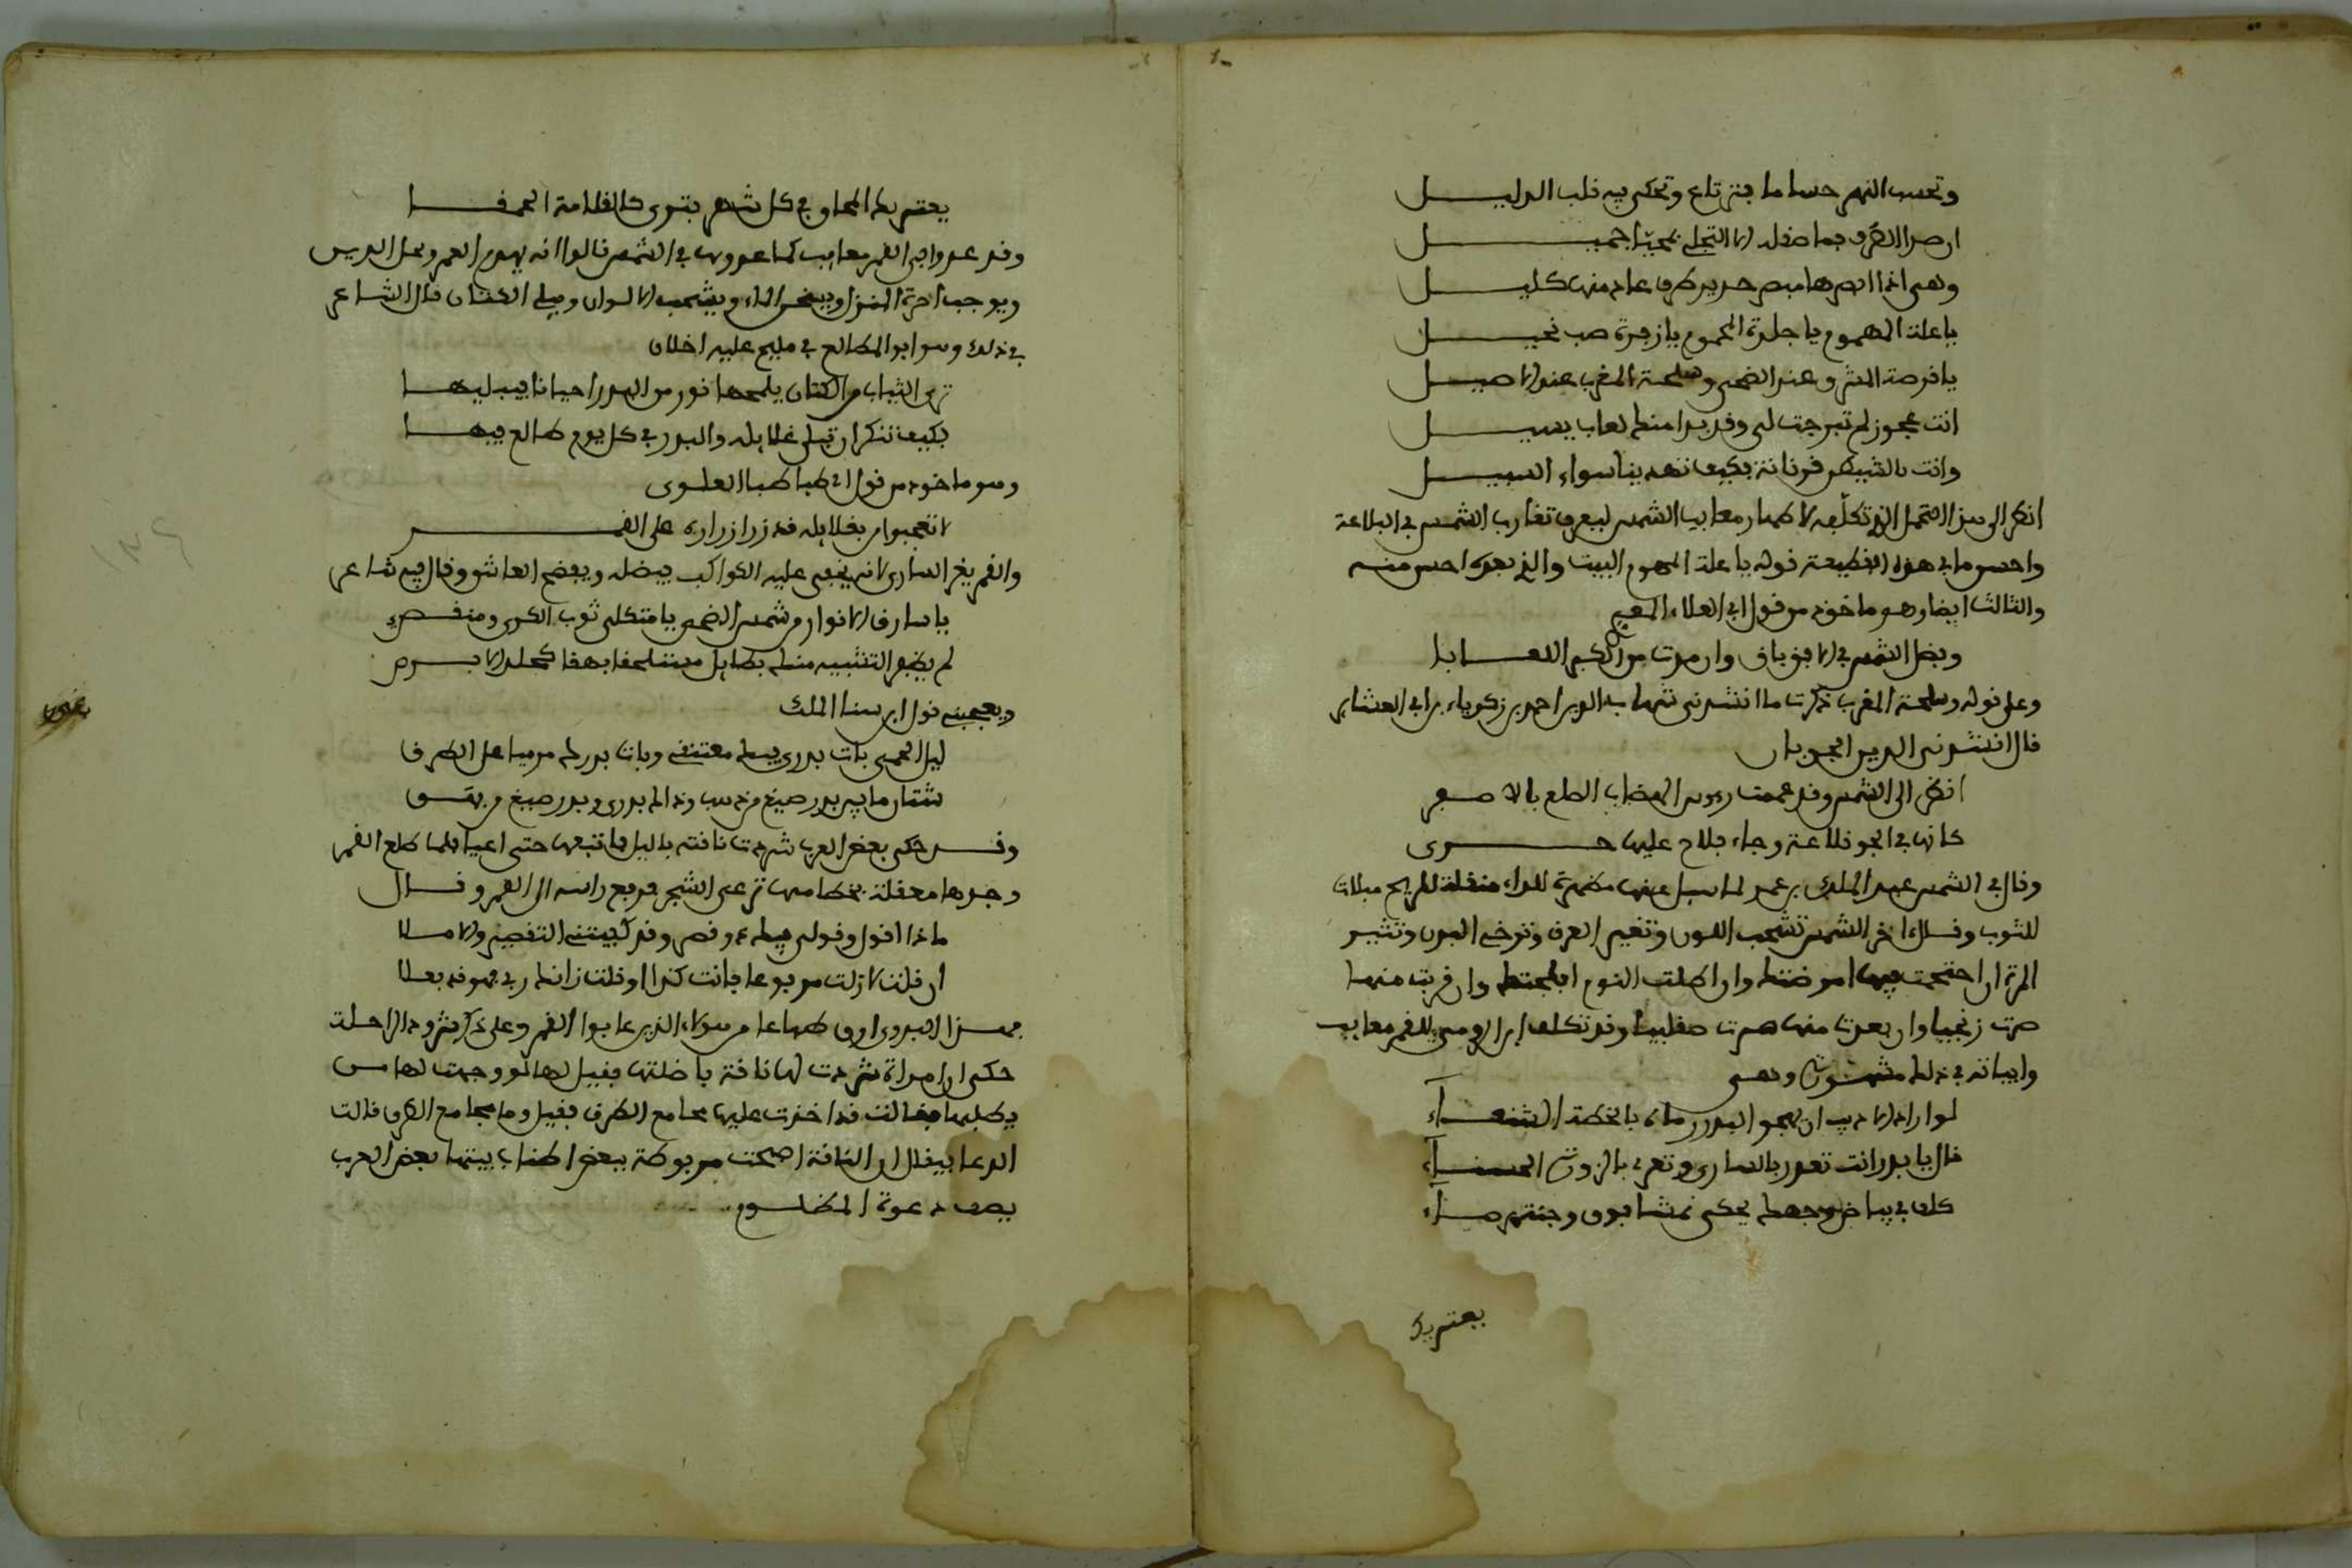 وتحسب النهر حساما فترتاع وتحكي فيه قلب الذليل
ان صدا الطرف فما صقله الا التجلي بمحيا جميل
وهي اذا ابصرها مبصر حديد طرف عاد منها كليل
يا علة المهموم يا جلدة المحموم يا زفرة صب نحيل
يا قرحة المشرق عند الضحى وسلحة المغرب عند الاصيل
انت عجوز لم تبرجت لي وقد بدا منك لعاب يسيل
وانت بالشيطن قرنانة فكيف تهدينا سواء السبيل
انظر الى هذا التحمل الذي تكلفه لاظهار معايب الشمس ليعرف تقارب الشمس في البلاغة
واحسن ما في هذه القطيعة قوله يا علة المهموم البيت والذي بعده احسن منه
والثالث ايضا وهو ماخوذ من قول ابي العلاء المعري
وبصل الشمس في الافق باق وان مدت من الكبر اللعابا
وعلى قوله وسلحة المغرب ذكرت ما انشدني شهاب الدين احمد بن زكرياء بن ابي العشاير
قال انشدني الدين الجوبان
انظر الى الشمس وقد عممت رءوس الهضاب الطلع بالاصفر
كانها في الجو قلاعة وجاء بلاح عليها خرى
وقال في الشمس عبد الملك بن عمير لما سيل عنها مظهرة للداء مثقلة للريح مبلاة
للثوب وقال اخر الشمس تشحب اللون وتغير العرق وترخي البدن وتثير
المرة ان احتجمت فيها امرضتك وان اطلت النوم افلجتك وان قربت منها
صرت زنجيا وان بعدت منها صرت صقلبيا وقد تكلف ابن الرومي للقمر معايب
وابياته في ذلك مشهورة وهي
لو اراد الاديب ان يهجو البدر رماه بالخطة الشنعاء
قال يا بدر انت تغدر بالساري وتغري بالزورة الحسناء
كلف في بياض وجهك يحكي نمشا فوق وجنة برصاء
يعتريك
يعتريك المحاق في كل شهر فترى كالقلامة الحجفا
وقد عدوا في القمر معايب كما عدوها في الشمس قالوا انه يهدم العمر ويحل الدين
ويوجب اجرة المنزل ويسخن الماء ويشحب الالوان ويبلي الكتان قال الشاعر
في ذلك وهو ابو المطاع في مليح عليه اخلاق
ترى الثياب من الكتان يلمحها نور من البدر احيانا فيبليها
فكيف تنكر ان تبلى غلايله والبدر في كل يوم طالع فيها
وهو ماخوذ من قول ابي طباطبا العلوي
لا تعجبوا من بلى غلايله قد زر ازراره على القمر
والقمر يغر الساري لانه يخفي عليه الكواكب بفضله ويفضح العاشق وقال فيه شاعر
يا سارق الانوار من شمس الضحى يا مثكلي ثوب الكرى ومنغصي
لم يظفر التشبيه منك بطايل متسلخا بهقا كجلد الابرص
ويعجبني قول ابن سنا الملك
ليل الحمى بات بدري فيك معتنقي وبات بدرك مرميا على الطرق
شتان ما بين بدر صيغ من ذهب وذاك بدري وبدر صيغ من بهق
وقد حكي بعض العرب شردت ناقته بالليل فاتبعها حتى اعيا فلما طلع القمر
وجدها معقلة بخطامها ترعى الشجر فرفع راسه الى القمر وقال
ماذا اقول وقولي فيك ذو قصر وقد كفيتني التفصيل والجملا
ان قلت لا زلت مرفوعا فانت كذا او قلت زانك ربي فهو قد فعلا
فهذا البدوي ارق طباعا من هولاء الذين عابوا القمر وعلى ذكر شرود الراحلة
حكي ان امراة شردت لها ناقة باضلتها فقيل لها لو وجهت لها من
يطلبها فقالت قد اخذت عليها مجامع الطرق فقيل وما مجامع الطرق قالت
الدعا فيقال ان الناقة اصبحت مربوطة ببعض اطناب بيتها بعض العرب
يصف دعوة المظلوم